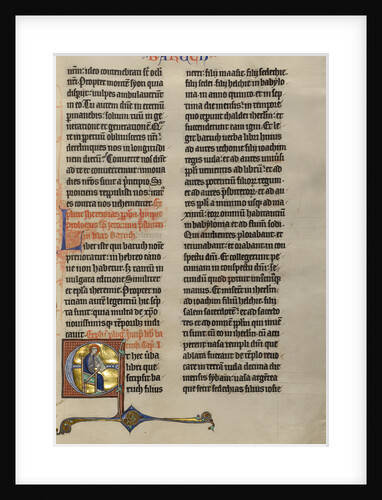 BARUCH
num: ideo contenebrati st ocli
nri. Propter montem syon quia
disperijt: vulpes ambulaverunt
in eo. Tu autem dne in eternum
permanebis: solium tuum in ge
neratione et generationem. Qua
re in ppetuum oblivisceris nri:
derelinques nos in longitudi
nem dierum? Converte nos dne
ad te et convertemur: innova
dies nros sicut a principio. Sed
proiciens reppulisti nos: irat
Liber iste qui baruch nomine
prenotatur: in hebreo cano
ne non habetur. sed tantum in
vulgata editione. Similiter
et epistola iheremie. Propter no
titiam autem legentium hic scp
ta sunt: quia multa de xpo
novissimisque temporibz indicant
Et hec verba
libri que
scripsit ba
ruch filius
nerie: filij maasie. filij sedechie.
filij sedei. filij helchie in babylo
nia. in anno quinto. et in sep
tima die mensis: in tempore
quo ceperunt chaldei ihersm: et
succenderunt eam igni. Et le
git baruch verba libri huius
ad aures iechonie filij ioachim
regis iuda: et ad aures universi
ppli venientis ad librum: et ad
aures potentium filiorum regum:
et ad aures pspiterorum: et ad au
res ppli a minimo usque ad ma
ximum: eorum omnium habitantium
in babylonia ad flumen sudi.
Qui audientes plorabant: et
ieiunabant: et orabant in con
spectu dni. Et collegerunt pe
cuniam in conspectu dni: se
cundum quod potuit uniuscuiusque
manus. Et miserunt in iherlm
ad ioachim filium helchie. filij
salom sacerdotem: et ad sacerdo
tes: et ad omnem pplm qui inven
ti sunt cum eo in iherlm: cum acci
peret vasa templi dni que
ablata fuerant de templo revo
care in terra iuda decima die
mensis syban: vasa argentea
que fecit sedechias filius iosie